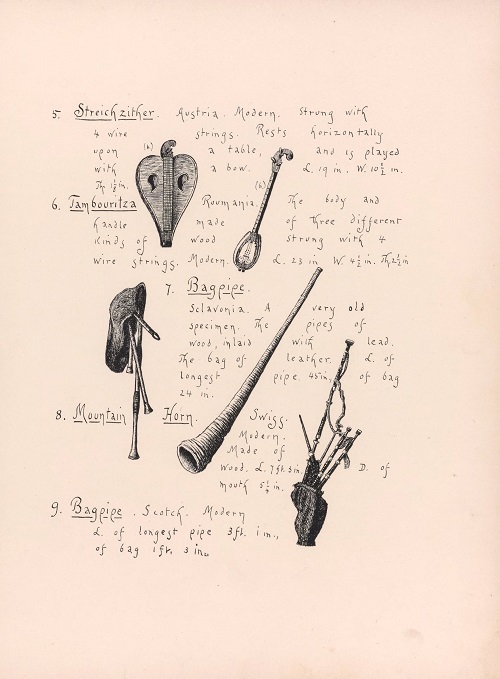 5. Streichzither. Austria. Modern. Strung with
4 wire strings. Rests horizontally
upon (5) a table, and is played
with a bow. L. 19 in. W. 10½ in.
Th 1½in. (6)
6. Tambouritza Roumania. The body and
handle made of three different
kinds of wood strung with 4
wire strings. Modern. L. 23 in W. 4½ in. Th 2½in
7. Bagpipe.
Sclavonia. A very old
specimen. The pipes of
wood, inlaid with lead.
The bag of leather. L. of
longest pipe 45in, of bag
24 in.
8. Mountain Horn. Swiss.
Modern.
Made of
wood. L. 7ft. 3in. D. of
mouth 5¼ in.
9. Bagpipe. Scotch. Modern
L. of longest pipe 3ft. 1in.,
of bag 1ft. 3in.